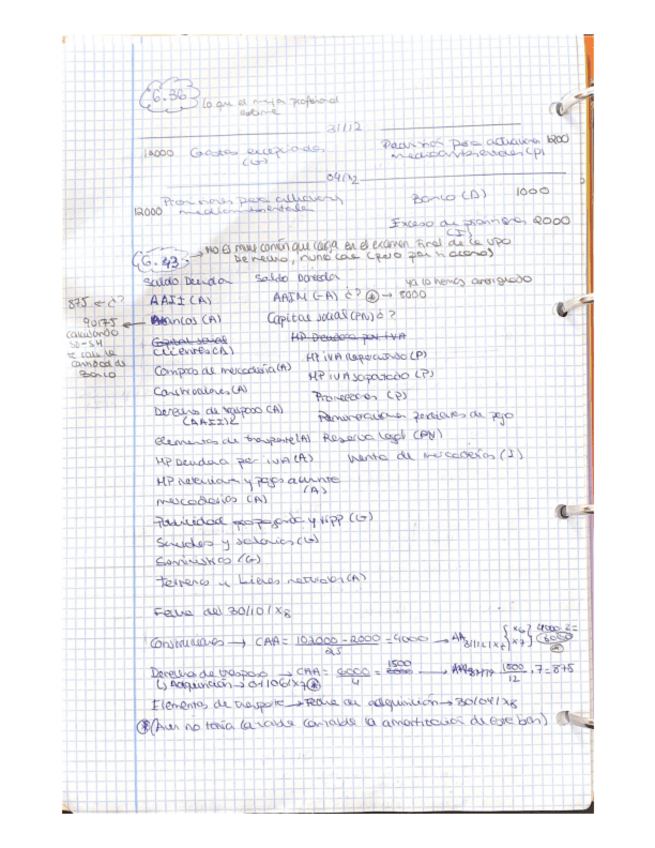 6.36 lo que el mejor profesional estime
31/12
12000 Gastos excepcionales (G) Provisiones para actuaciones medioambientales (P) 12000
04/12
12000 Provisiones para actuaciones medioambientales Banco (A) 1000
Exceso de provisiones (I) 2000
6.43 → NO es muy común que caiga en el examen final de la UPO
De hecho, nunca cae
Saldo Deudor Saldo
875 ← ¿? AAII (A) AAIM (-A) ¿? → 8000 ya lo hemos
90175 ← Bancos (A) Capital social (PN) ¿?
calculando
SD-SH
te sale la
cantidad de
Banco
Capital social HP Deudora por IVA
Clientes (A) HP IVA Repercutido (P)
Compras de mercadería (A) HP IVA soportado (P)
Construcciones (A) Proveedores (P)
Derechos de traspaso (A) Remuneraciones pendientes de pago
(AAII)2
Elementos de transporte (A) Reserva legal (PN)
HP Deudora por IVA (A) Venta de mercaderías (I)
HP retenciones y pagos a cuenta (A)
mercaderías (A)
Publicidad propaganda y rrpp (G)
Sueldos y salarios (G)
Suministros (G)
Terrenos y bienes naturales (A)
Fecha del 30/10/X8
Construcciones → CAA = 102000 - 2000 / 25 = 4000 → AA 31/12/X7 { X6 X7 } 4000·2 = 8000
Derechos de traspaso → CAA = 6000 / 4 = 1500 → 1500 / 12 · 7 = 875
↳ Adquisición → 01/06/X7
Elementos de transporte → Fecha de adquisición → 30/04/X8
(Aún no tenía la cuenta contable la amortización de este bien)